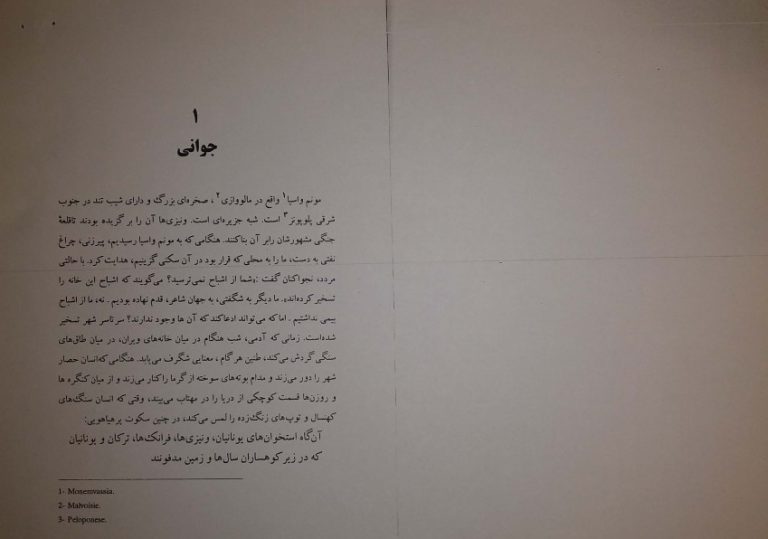 ۱
جوانی
مونم واسیا۱ واقع در مالووازی۲، صخره‌ای بزرگ و دارای شیب تند در جنوب
شرقی پلوپونز۳ است. شبه جزیره‌ای است. ونیزی‌ها آن را برگزیده بودند تاقلعهٔ
جنگی مشهورشان رابر آن بناکنند. هنگامی‌که به مونم واسیا رسیدیم، پیرزنی، چراغ
نفتی به دست، ما را به محلی که قرار بود در آن سکنی گزینیم، هدایت کرد. با حالتی
مردد، نجواکنان گفت :«شما از اشباح نمی‌ترسید؟ می‌گویند که اشباح این خانه را
تسخیر کرده‌اند». ما دیگر به شگفتی، به جهان شاعر، قدم نهاده بودیم . نه، ما از اشباح
بیمی نداشتیم . اماکه می‌تواند ادعاکند که آن ها وجود ندارند؟ سرتاسر شهر تسخیر
شده‌است. زمانی که آدمی، شب هنگام در میان خانه‌های ویران، در میان طاق‌های
سنگی گردش می‌کند، طنین هرگام ، معنایی شگرف می‌یابد. هنگامی‌که‌انسان حصار
شهر را دور می‌زند و مدام بوته‌های سوخته از گرما راکنار می‌زند و از میان کنگره ها
و روزن‌ها قسمت کوچکی از دریا را در مهتاب می‌بیند، وقتی که انسان سنگ‌های
کهنسال و توپ‌های زنگ‌زده را لمس می‌کند، در چنین سکوت پرهیاهویی:
آن‌گاه استخوان‌های یونانیان، ونیزی‌ها، فرانک‌ها، ترکان و یونانیان
که در زیرکوهساران سال‌ها و زمین مدفونند
1- Mosemvassia.
2- Malvoisie.
3- Peloponese.